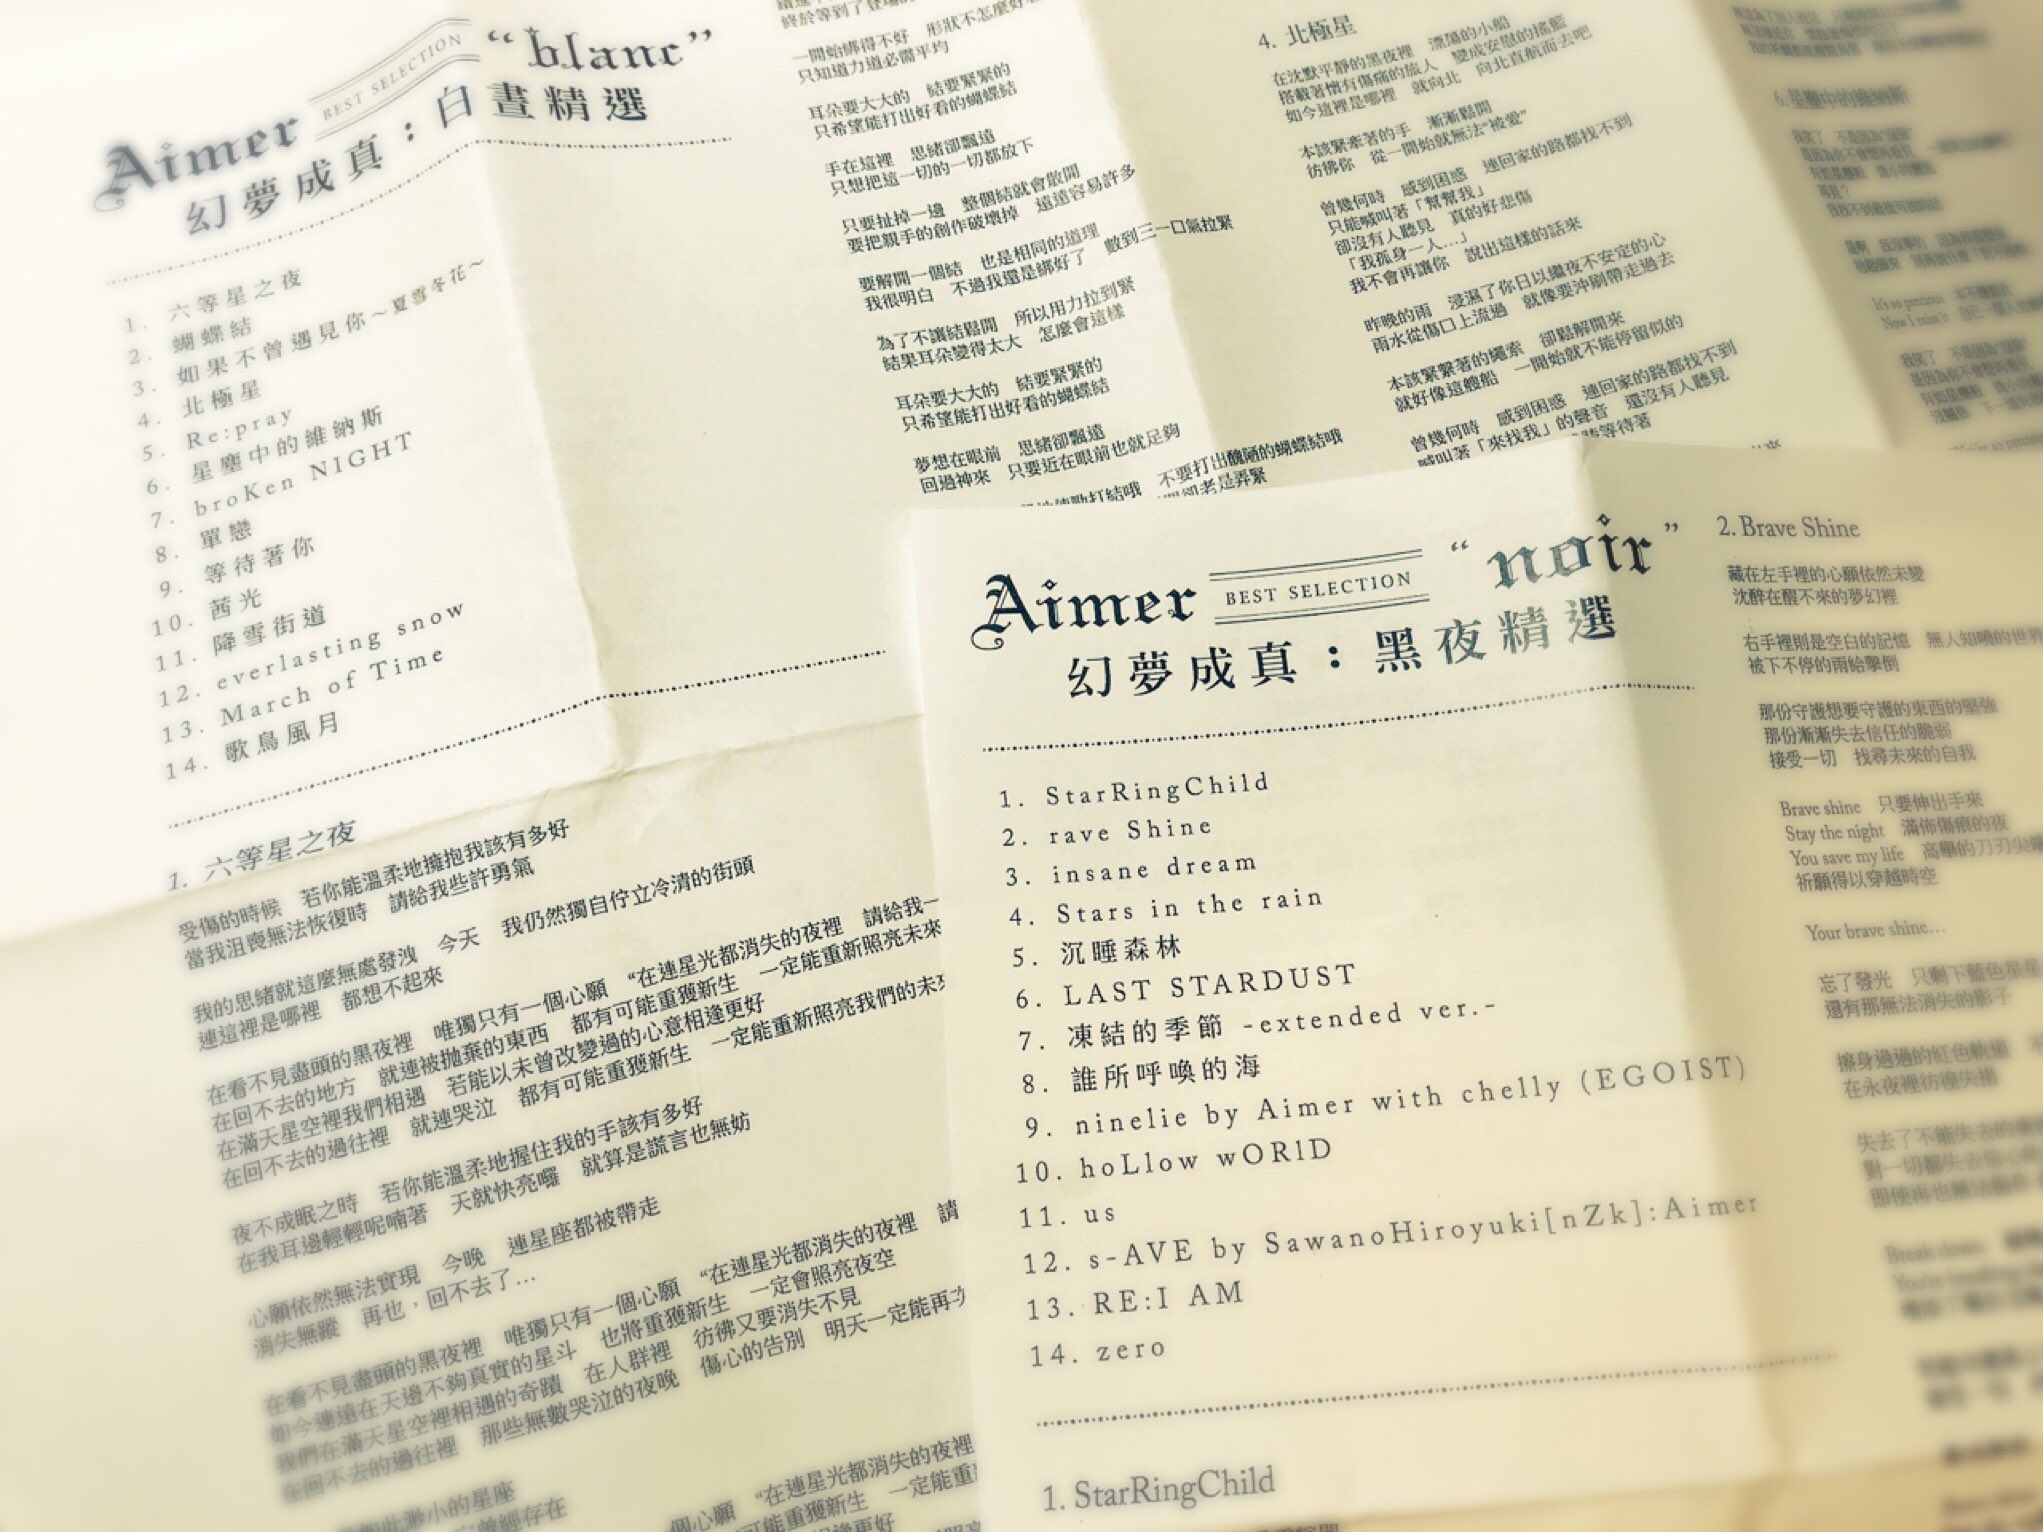 Aimer BEST SELECTION “blanc”
幻夢成真：白晝精選
1. 六等星之夜
2. 蝴蝶結
3. 如果不曾遇見你～夏雪冬花～
4. 北極星
5. Re:pray
6. 星塵中的維納斯
7. broKen NIGHT
8. 單戀
9. 等待著你
10. 茜光
11. 降雪街道
12. everlasting snow
13. March of Time
14. 歌鳥風月
1. 六等星之夜
受傷的時候　若你能溫柔地擁抱我該有多好
當我沮喪無法恢復時　請給我些許勇氣
我的思緒就這麼無處發洩　今天　我仍然獨自佇立冷清的街頭
連這裡是哪裡　都想不起來
在看不見盡頭的黑夜裡　唯獨只有一個心願　“在連星光都消失的夜裡　請給我一
在回不去的地方　就連被拋棄的東西　都有可能重獲新生　一定能重新照亮未來
在滿天星空裡我們相遇　若能以未曾改變過的心意相逢更好
在回不去的過往裡　就連哭泣　都有可能重獲新生　一定能重新照亮我們的未來
夜不成眠之時　若你能溫柔地握住我的手該有多好
在我耳邊輕輕呢喃著　天就快亮囉　就算是謊言也無妨
心願依然無法實現　今晚　連星座都被帶走
消失無蹤　再也，回不去了…
在看不見盡頭的黑夜裡　唯獨只有一個心願　“在連星光都消失的夜裡　請
如今連遠在天邊不夠真實的星斗　也將重獲新生　一定會照亮夜空
我們在滿天星空裡相遇的奇蹟　在人群裡　彷彿又要消失不見
在回不去的過往裡　那些無數哭泣的夜晚　傷心的告別　明天一定能再次
如此渺小的星座
曾經存在
個心願　“在連星光都消失的夜裡
可能重獲新生　一定能重
終於等到了登場
一開始綁得不好　形狀不怎麼好
只知道力道必需平均
耳朵要大大的　結要緊緊的
只希望能打出好看的蝴蝶結
手在這裡　思緒卻飄遠
只想把這一切的一切都放下
只要扯掉一邊　整個結就會散開
要把親手的創作破壞掉　遠遠容易許多
要解開一個結　也是相同的道理
我很明白　不過我還是綁好了　數到三一口氣拉緊
為了不讓結鬆開　所以用力拉到緊
結果耳朵變得太大　怎麼會這樣
耳朵要大大的　結要緊緊的
只希望能打出好看的蝴蝶結
夢想在眼前　思緒卻飄遠
回過神來　只要近在眼前也就足夠
打結哦　不要打出醜陋的蝴蝶結哦
卻老是弄緊
4. 北極星
在沈默平靜的黑夜裡　漂蕩的小船
搭載著懷有傷痛的旅人　變成安慰的搖籃
如今這裡是哪裡　就向北　向北直航而去吧
本該緊牽著的手　漸漸鬆開
彷彿你　從一開始就無法“被愛”
曾幾何時　感到困惑　連回家的路都找不到
只能喊叫著「幫幫我」
卻沒有人聽見　真的好悲傷
「我孤身一人….」
我不會再讓你　說出這樣的話來
昨晚的雨　浸濕了你日以繼夜不安定的心
雨水從傷口上流過　就像要沖刷帶走過去
本該緊繫著的繩索　卻鬆解開來
就好像這艘船　一開始就不能停留似的
曾幾何時　感到困惑　連回家的路都找不到
喊叫著「來找我」的聲音　還沒有人聽見
等待著
6. 星塵中的維納斯
再見？
It's so precious
Now I miss it
Aimer BEST SELECTION “noir”
幻夢成真：黑夜精選
1. StarRingChild
2. rave Shine
3. insane dream
4. Stars in the rain
5. 沉睡森林
6. LAST STARDUST
7. 凍結的季節 -extended ver.-
8. 誰所呼喚的海
9. ninelie by Aimer with chelly (EGOIST)
10. hoLlow wORlD
11. us
12. s-AVE by SawanoHiroyuki[nZk]:Aimer
13. RE:I AM
14. zero
1. StarRingChild
2. Brave Shine
藏在左手裡的心願依然未變
沈醉在醒不來的夢幻裡
右手裡則是空白的記憶　無人知曉的世界
被下不停的雨給擊倒
那份守護想要守護的東西的堅強
那份漸漸失去信任的脆弱
接受一切　找尋未來的自我
Brave shine　只要伸出手來
Stay the night　滿佈傷痕的夜
You save my life　高舉的刀刃尖端
祈願得以穿越時空
Your brave shine…
忘了發光　只剩下藍色星星
還有那無法消失的影子
擦身過過的紅色軌道
在永夜裡彷徨失措
失去了不能失去的東西
對一切都失去信心
即使再也無法
Break down